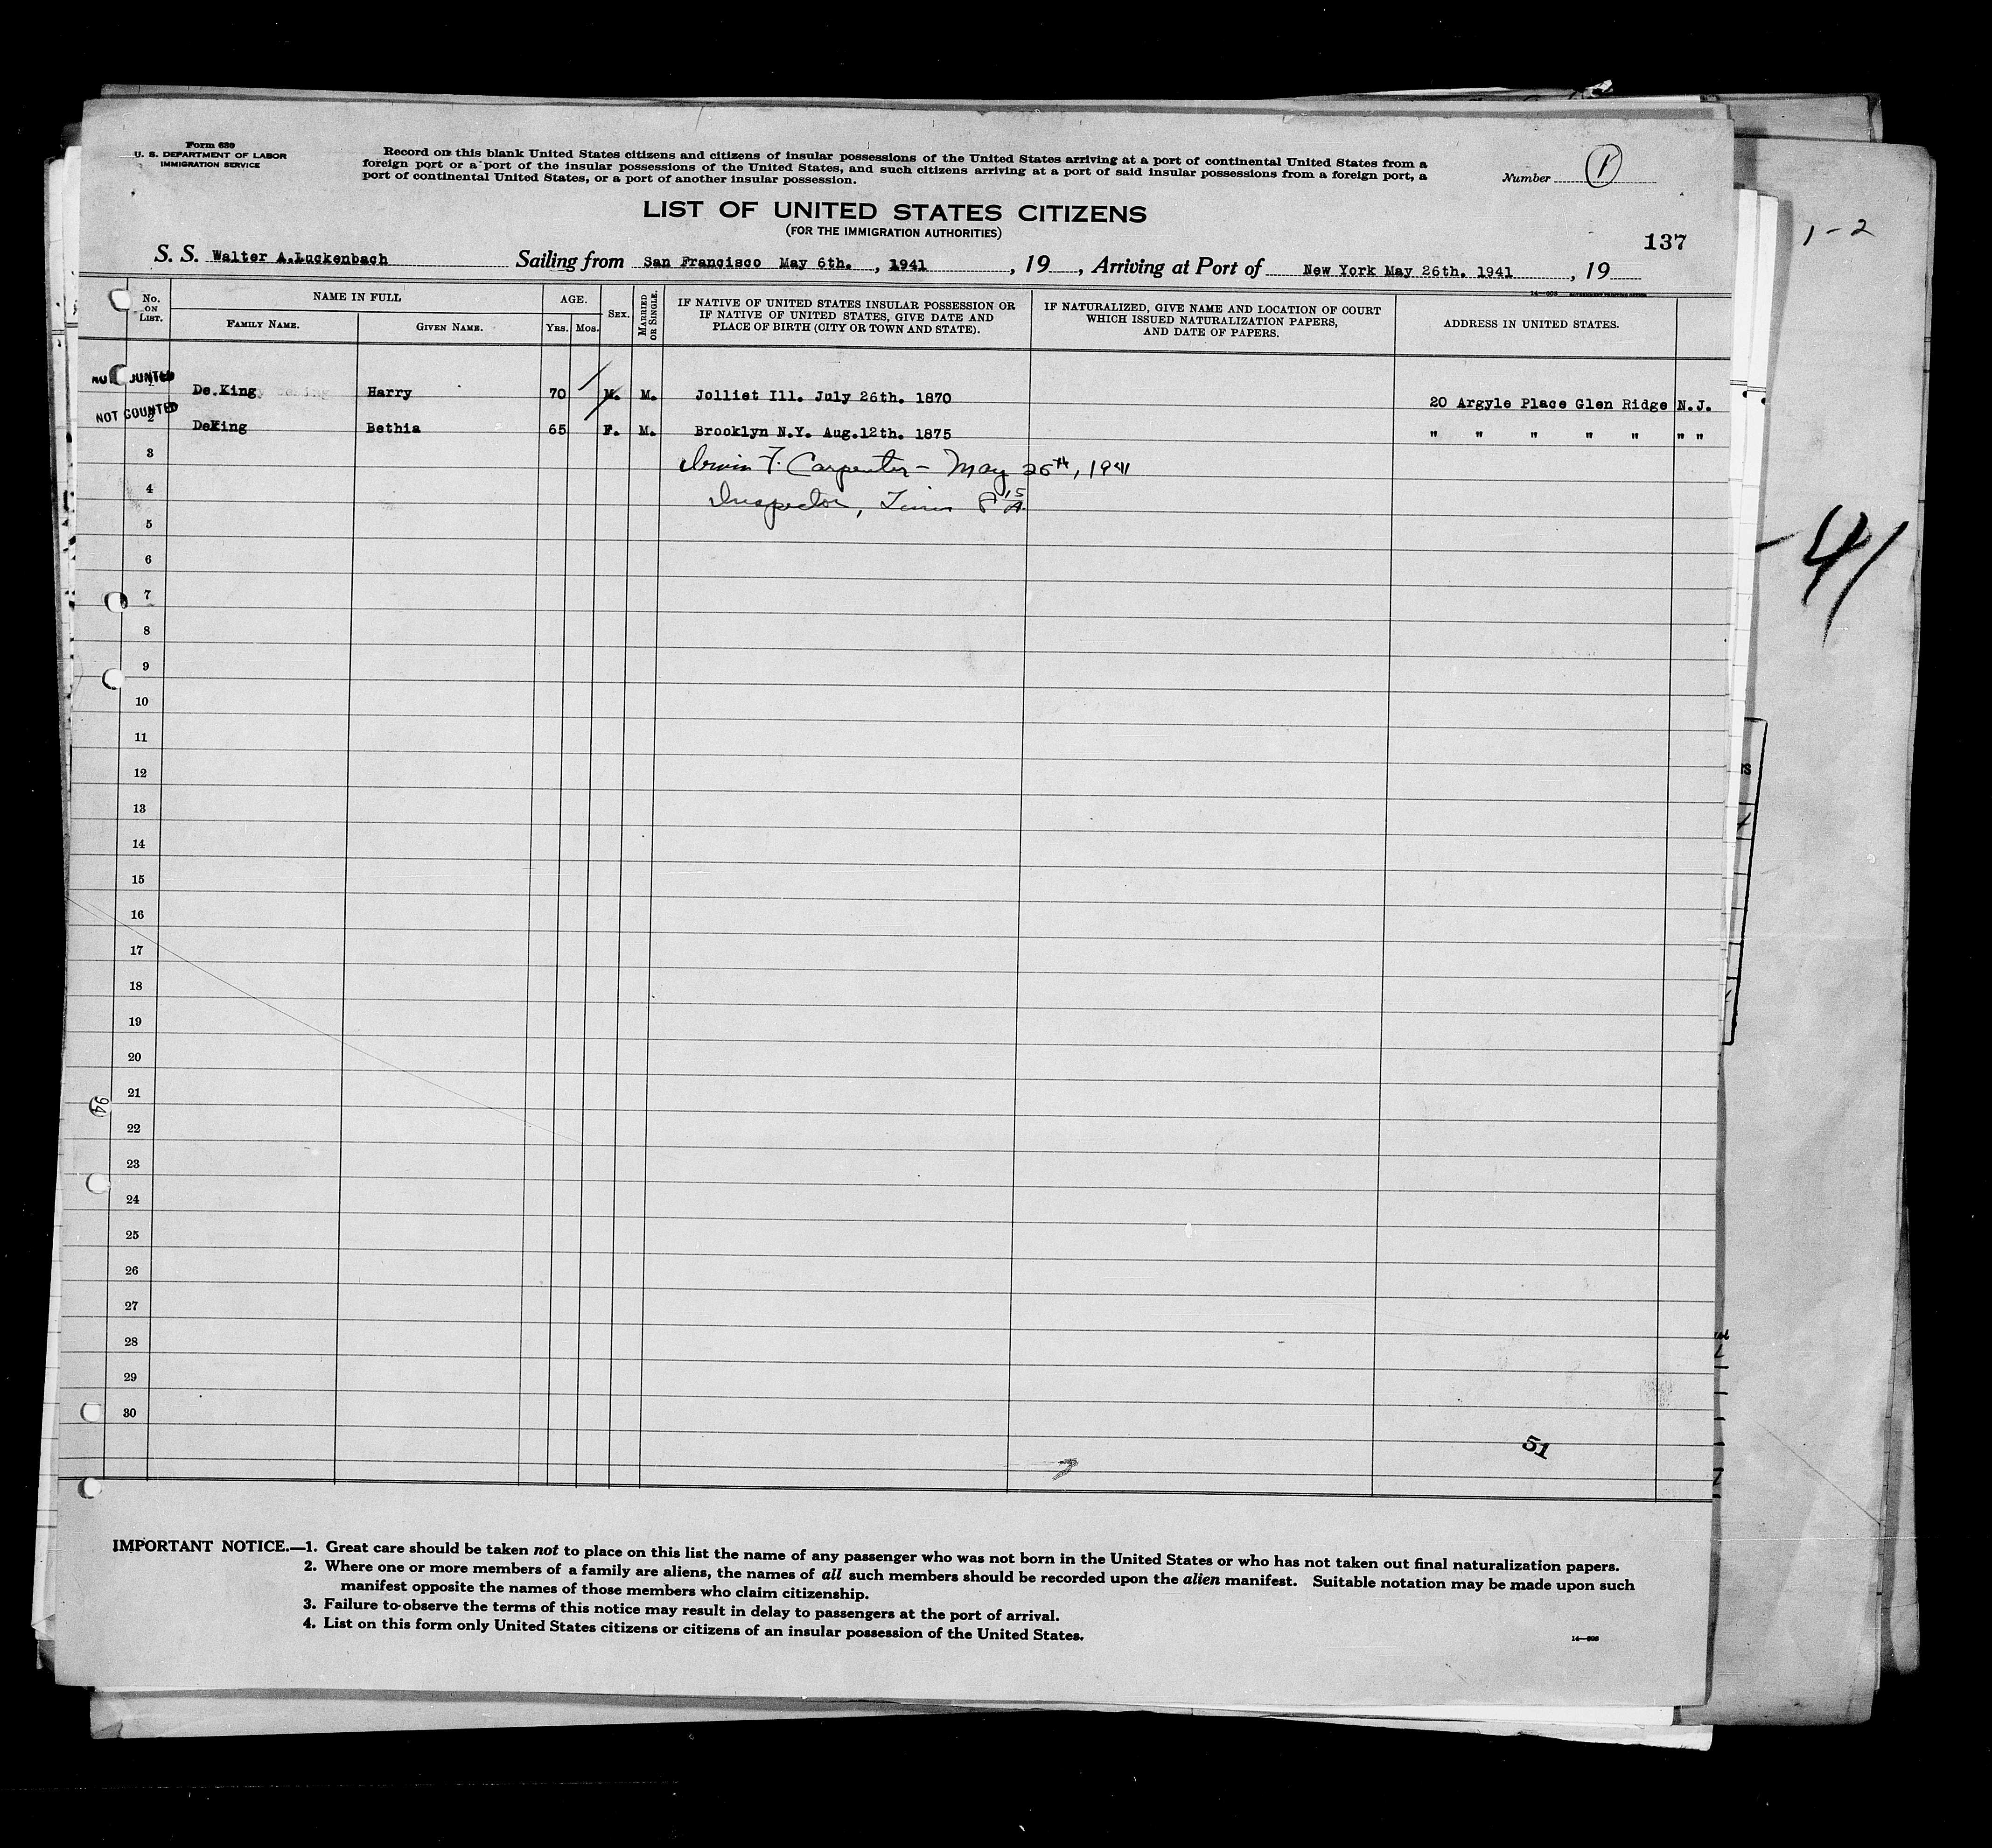 Form 630
U. S. DEPARTMENT OF LABOR
IMMIGRATION SERVICE
Record on this blank United States citizens and citizens of insular possessions of the United States arriving at a port of continental United States from a
foreign port or a port of the insular possessions of the United States, and such citizens arriving at a port of said insular possessions from a foreign port, a
port of continental United States, or a port of another insular possession.
Number 1
LIST OF UNITED STATES CITIZENS
(FOR THE IMMIGRATION AUTHORITIES)
137
1-2
S. S. Walter A.Luckenbach Sailing from San Francisco May 6th. , 1941 , 19 , Arriving at Port of New York May 26th. 1941 , 19
No. ON LIST.
NAME IN FULL
FAMILY NAME.
GIVEN NAME.
AGE.
YRS.
MOS.
SEX.
MARRIED OR SINGLE.
IF NATIVE OF UNITED STATES INSULAR POSSESSION OR
IF NATIVE OF UNITED STATES, GIVE DATE AND
PLACE OF BIRTH (CITY OR TOWN AND STATE).
IF NATURALIZED, GIVE NAME AND LOCATION OF COURT
WHICH ISSUED NATURALIZATION PAPERS,
AND DATE OF PAPERS.
ADDRESS IN UNITED STATES.
De.King Harry 70 M. M. Jolliet Ill. July 26th. 1870 20 Argyle Place Glen Ridge N.J.
NOT COUNTED
2 DeKing Bethia 65 F. M. Brooklyn N.Y. Aug.12th. 1875 " " " " " " "
3 Irwin F. Carpenter - May 26th, 1941
4 Inspector, Time 8 15 A.
5
6
7
8
9
10
11
12
13
14
15
16
17
18
19
20
21
22
23
24
25
26
27
28
29
30
41
94
51
IMPORTANT NOTICE.—1. Great care should be taken not to place on this list the name of any passenger who was not born in the United States or who has not taken out final naturalization papers.
2. Where one or more members of a family are aliens, the names of all such members should be recorded upon the alien manifest. Suitable notation may be made upon such
manifest opposite the names of those members who claim citizenship.
3. Failure to observe the terms of this notice may result in delay to passengers at the port of arrival.
4. List on this form only United States citizens or citizens of an insular possession of the United States.